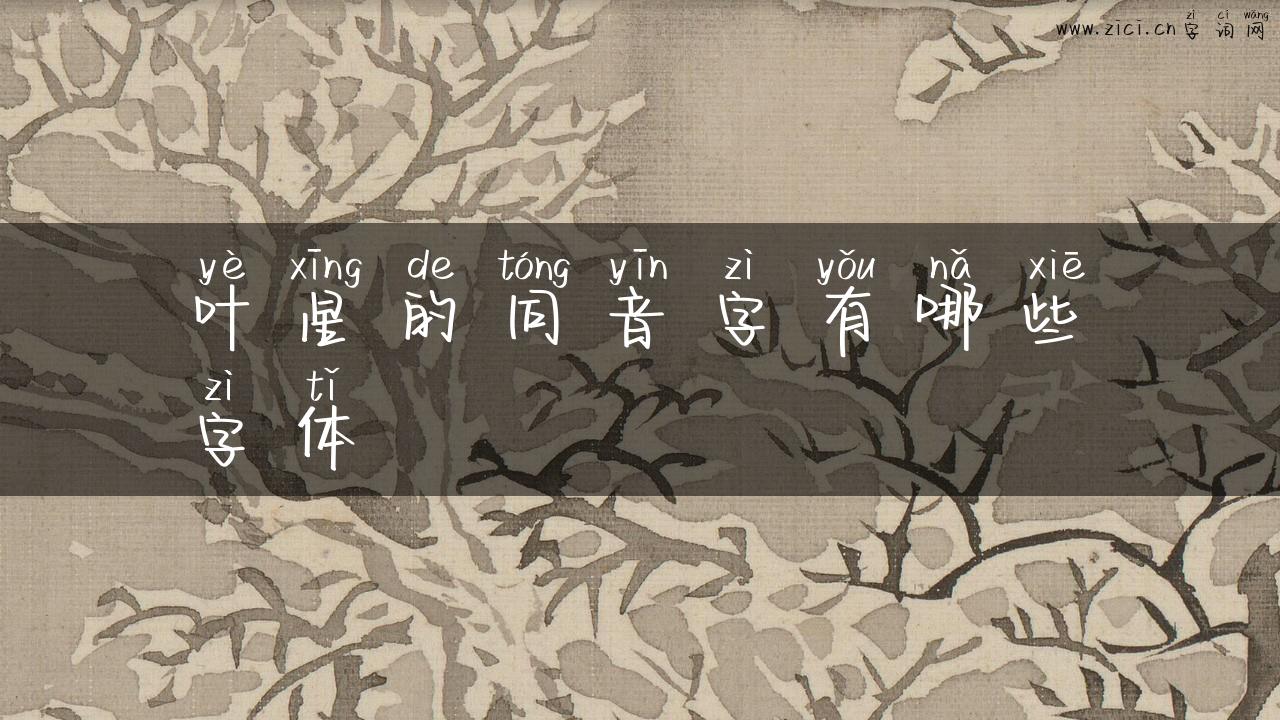 www.zici.cn 字词网
zì cí wǎng
yè xīng de tóng yīn zì yǒu nǎ xiē
叶星的同音字有哪些
zì tǐ
字体